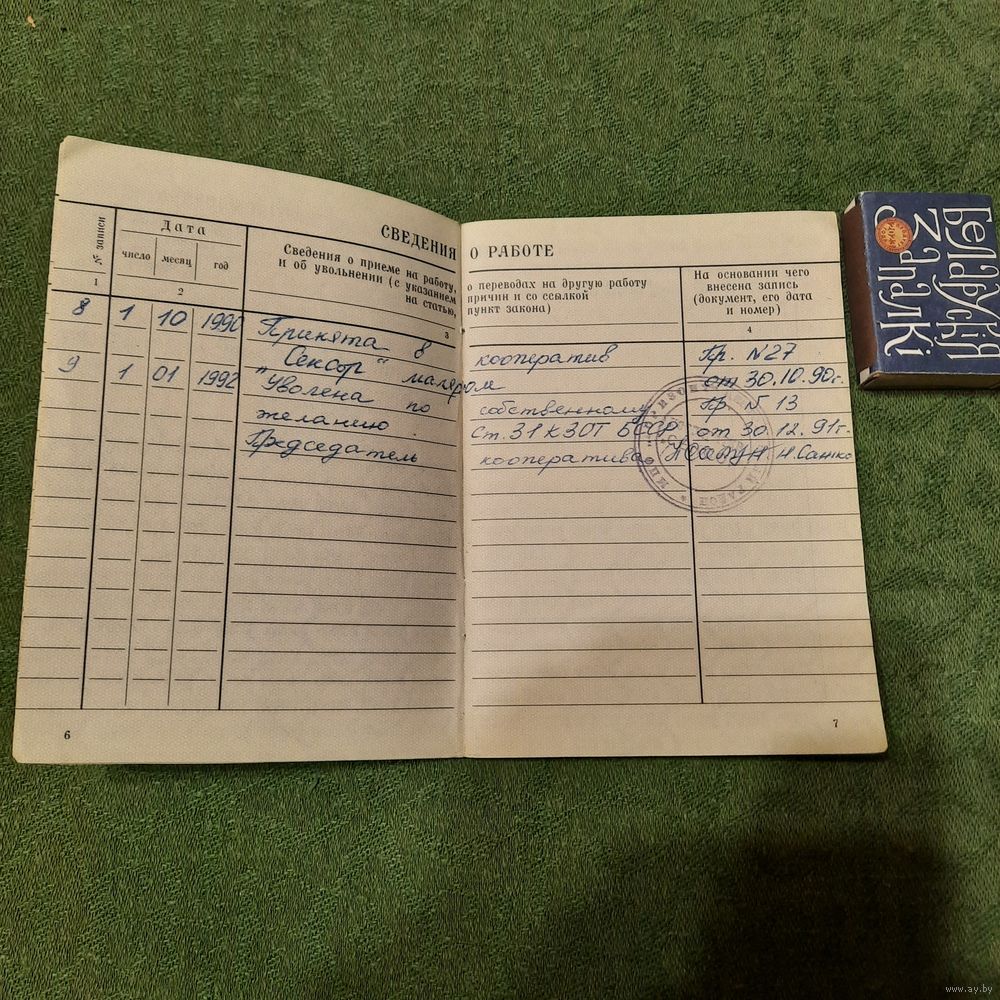 СВЕДЕНИЯ О РАБОТЕ
№ записи
Дата
число месяц год
Сведения о приеме на работу,
и об увольнении (с указанием
на статью,
о переводах на другую работу
причин и со ссылкой
пункт закона)
На основании чего
внесена запись
(документ, его дата
и номер)
1 2 3 4
8 1 10 1990 Принята в кооператив Пр. N27
"Сенсор" маляром от 30.10.90г.
9 1 01 1992 Уволена по собственному Пр. N 13
желанию Ст. 31 КЗОТ БССР от 30.12.91г.
Председатель кооператива Н.
6
7
Беларускія
Запалкі
www.ay.by